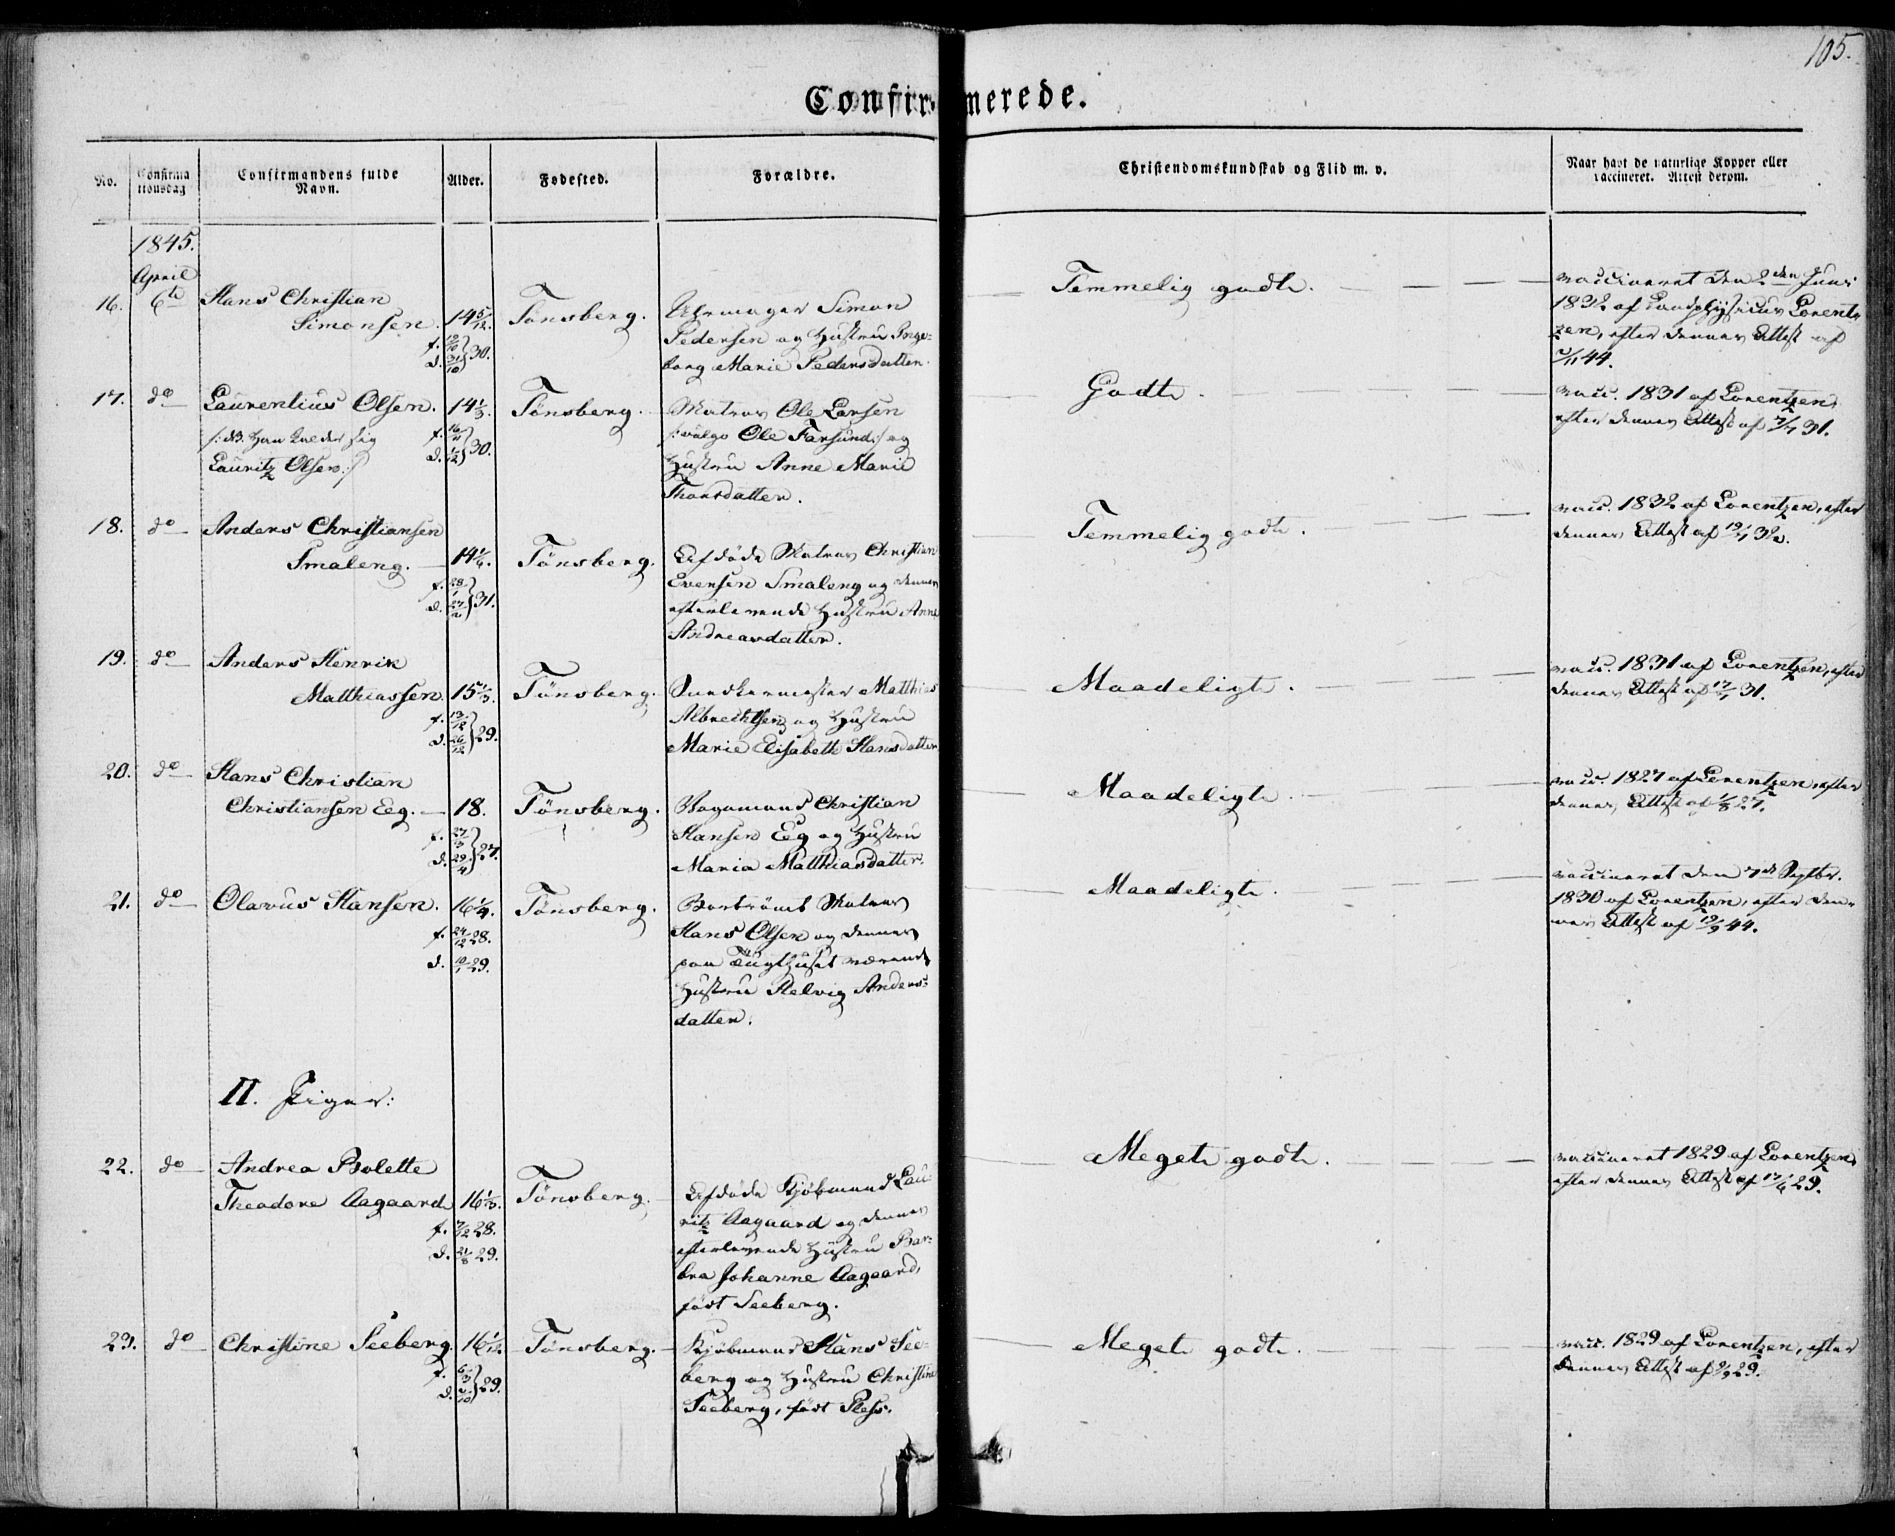 105.
Confirmerede.
No.
Confirma
tionsdag
Confirmandens fulde
Navn.
Alder.
Fodested.
Forældre.
Christendomskundskab og Flid m. v.
Naar havt de naturlige Kopper eller
vaccineret. Attest derom.
1845.
April
16. 6te Hans Christian
Simonsen. 14 5/12. Tönsberg.
f. 19/10 } 30.
d. 31/10
Uhrmager Simon
Pedersen og Hustru Inge-
borg Marie Pedersdatter.
Temmelig godt.
vaccineret den 2den Juni
1832 af Landphysicus Lorent-
zen, efter dennes Attest af
44.
17. do Laurentius Olsen. 14 1/3. Tönsberg.
/: NB. Han kalder sig
Lauritz Olsen :/
f. 16/11 } 30.
d. 1/12
Matros Ole Larsen
/: vulgo Ole Farsund :/ og
Hustru Anne Marie
Thorsdatter.
Godt.
vacc. 1831 af Lorentzen,
efter dennes Attest af 7/7 31.
18. do Anders Christiansen
Smaleng. 14 1/6. Tönsberg.
f. 28/1 } 31.
d. 27/2
Afdöde Matros Christian
Evensen Smaleng og dennes
efterlevende Hustru Anne
Andreasdatter.
Temmelig godt.
vacc. 1832 af Lorentzen, efter
dennes Attest af 19/1 32.
19. do Anders Henrik
Matthiassen. 15 1/3. Tönsberg.
f. 13/12 } 29.
d. 26/12
Matthias
Albrechtsen og Hustru
Marie Elisabeth Hansdatter
Maadeligt.
vacc. 1831 af Lorentzen, efter
dennes Attest af 17/7 31.
20. do Hans Christian
Christiansen Eeg. 18. Tönsberg.
f. 27/3 } 27.
d. 29/4
Christian
Hansen Eeg og Hustru
Maria Matthiasdatter.
Maadeligt.
vacc. 1827 af Lorentzen, efter
dennes Attest af 1/8 27.
21. do Olavus Hansen. 16 1/4. Tönsberg.
f. 24/12 28.
d. 10/1 29.
Bortrömt Matros
Hans Olsen og dennes
paa Tugthuset værende
Hustru Helvig Anders-
datter.
Maadeligt.
vaccineret den 7de Septbr.
1830 af Lorentzen, efter den-
nes Attest af 19/9 44.
II. Piger:
22. do Andrea Bolette
Theodore Aagaard 16 1/3. Tönsberg.
f. 7/12 28.
d. 21/8 29.
Afdöde Kjöbmand Lau-
ritz Aagaard og dennes
efterlevende Hustru Bar-
bra Johanne Aagaard,
födt Seeberg.
Meget godt.
vaccineret 1829 af Lorentzen,
efter dennes Attest af 17/6 29.
23. do Christine Seeberg. 16 1/12. Tönsberg.
f. 6/3 } 29.
d. 2/10
Kjöbmand Hans See-
berg og Hustru Christine
Seeberg, födt Pless.
Meget godt.
vacc. 1829 af Lorentzen, efter
dennes Attest af 29.